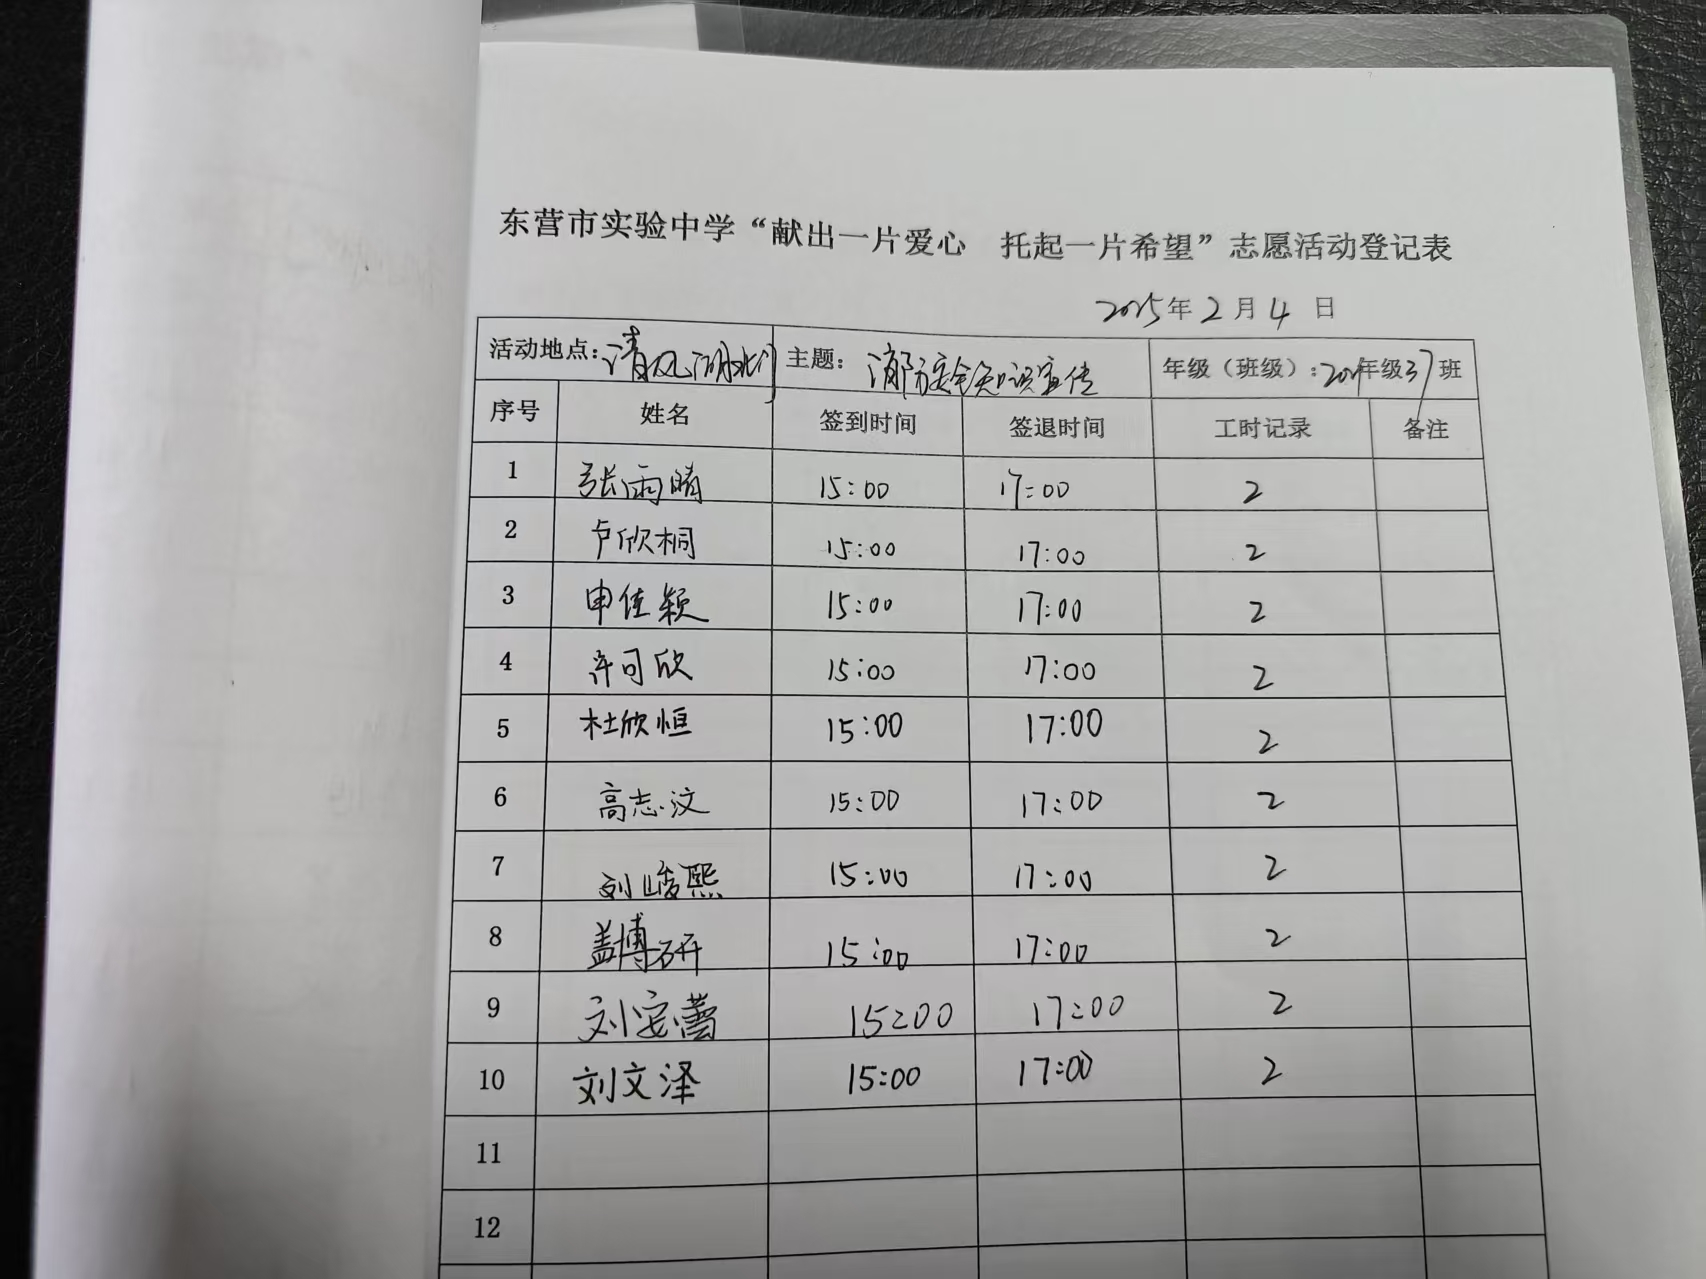 东营市实验中学“献出一片爱心 托起一片希望”志愿活动登记表
2025年2月4日
活动地点:清风湖北门 主题: 消防安全知识宣传 年级（班级）:2024年级37班
序号 姓名 签到时间 签退时间 工时记录 备注
1 张雨晴 15:00 17:00 2
2 卢欣桐 15:00 17:00 2
3 申佳颖 15:00 17:00 2
4 许可欣 15:00 17:00 2
5 杜欣恒 15:00 17:00 2
6 高志汶 15:00 17:00 2
7 刘峻熙 15:00 17:00 2
8 盖博研 15:00 17:00 2
9 刘安蕾 15:00 17:00 2
10 刘文泽 15:00 17:00 2
11
12